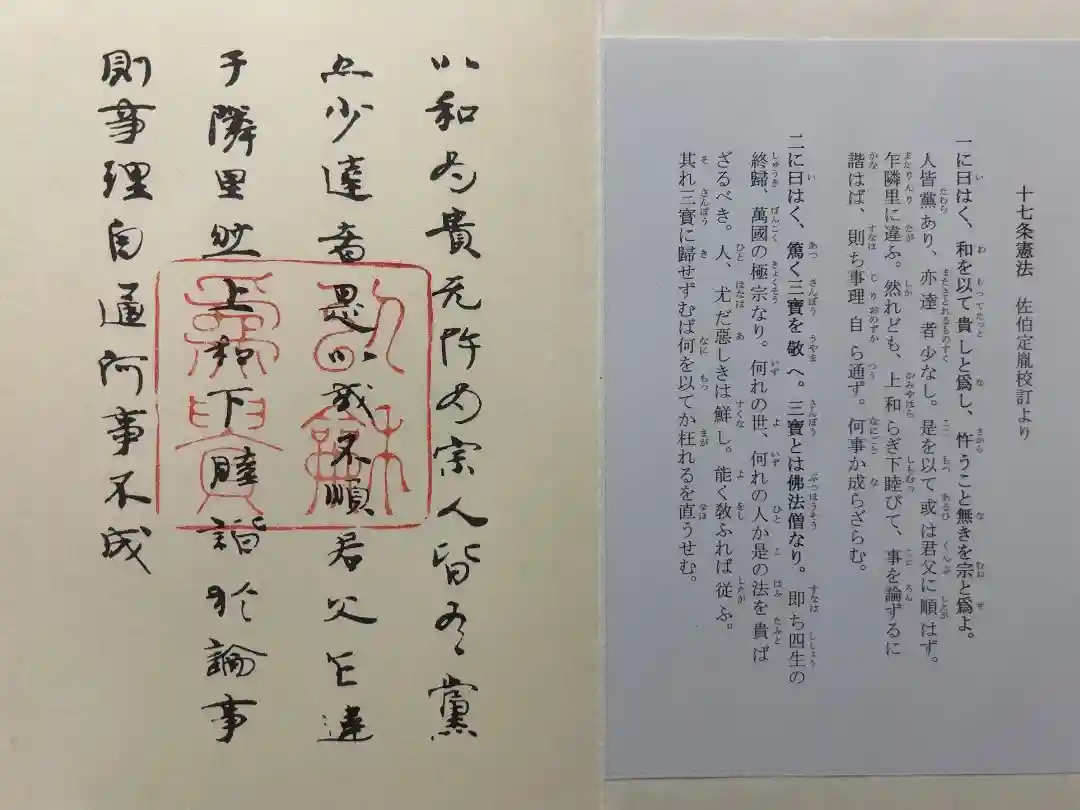 十七条憲法　佐伯定胤校訂より
一に曰はく、和を以て貴しと爲し、忤うこと無きを宗と爲よ。
人皆黨あり、亦達者少なし。是を以て或は君父に順はず。
乍隣里に違ふ。然れども、上和らぎ下睦びて、事を論ずるに
諧はば、則ち事理自ら通ず。何事か成らざらむ。
二に曰はく、篤く三寶を敬へ。三寶とは佛法僧なり。即ち四生の
終歸、萬國の極宗なり。何れの世、何れの人か是の法を貴ば
ざるべき。人、尤だ惡しきは鮮し。能く敎ふれば從ふ。
其れ三寶に歸せずむば何を以てか枉れるを直うせむ。
以和為貴无忤為宗人皆有黨
亦少達者是以或不順君父乍違
于隣里然上和下睦諧於論事
則事理自通何事不成
以龢
為貴